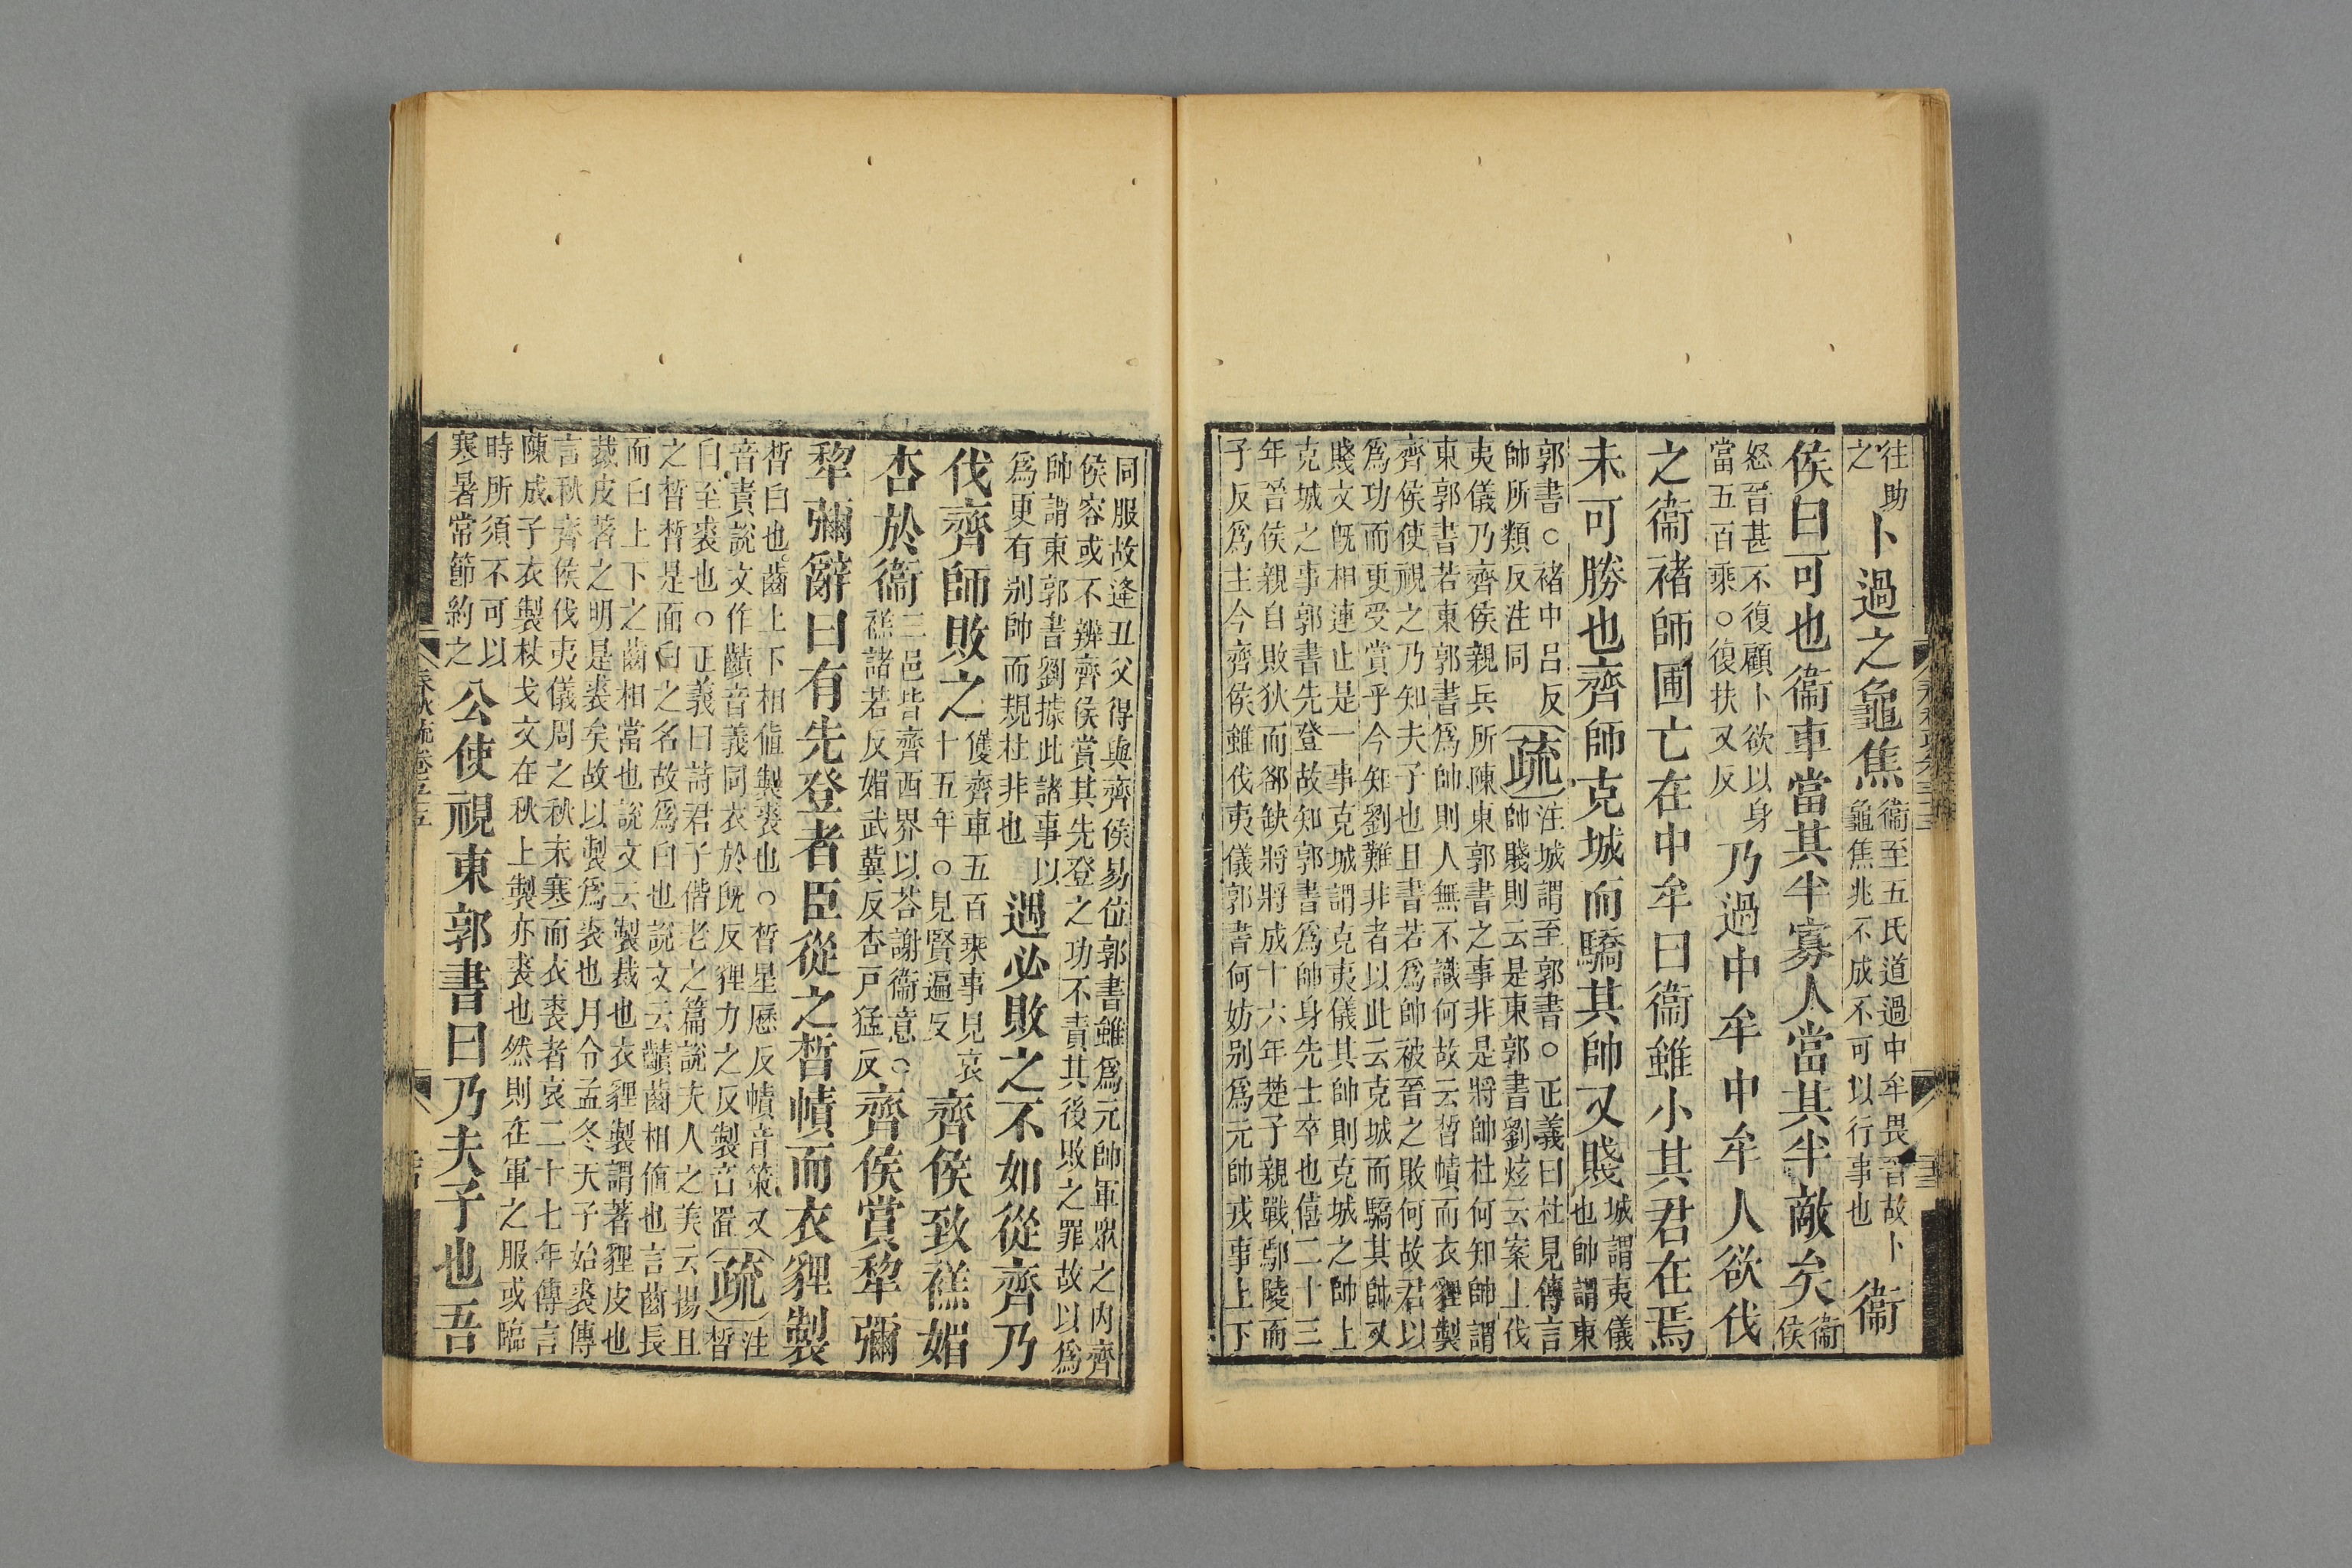 往助
之
卜過之龜焦
衞至五氏道過中牟畏晉故卜
龜焦兆不成不可以行事也
衞
侯曰可也衞車當其半寡人當其半敵矣
衞
侯
怒晉甚不復顧卜欲以身
當五百乘○復扶又反
乃過中牟中牟人欲伐
之衞褚師圃亡在中牟曰衞雖小其君在焉
未可勝也齊師克城而驕其帥又賤
城謂夷儀
也帥謂東
郭書○褚中呂反
帥所類反注同
疏
注城謂至郭書○正義曰杜見傳言
帥賤則云是東郭書劉炫云案上伐
夷儀乃齊侯親兵所陳東郭書之事非是將帥杜何知帥謂
東郭書若東郭書爲帥則人無不識何故云晳幘而衣貍製
齊侯使視之乃知夫子也且書若爲帥被晉之敗何故君以
爲功而更受賞乎今知劉難非者以此云克城而驕其帥又
賤文旣相連止是一事克城謂克夷儀其帥則克城之帥上
克城之事郭書先登故知郭書爲帥身先士卒也僖二十三
年晉侯親自敗狄而郤缺將將成十六年楚子親戰鄢陵而
子反爲主今齊侯雖伐夷儀郭書何妨别爲元帥戎事上下
同服故逄丑父得與齊侯易位郭書雖爲元帥軍衆之内齊
侯容或不辨齊侯賞其先登之功不責其後敗之罪故以爲
帥謂東郭書劉據此諸事以
爲更有别帥而規杜非也
遇必敗之不如從齊乃
伐齊師敗之
獲齊車五百乘事見哀
十五年○見賢遍反
齊侯致禚媚
杏於衞
三邑皆齊西界以荅謝衞意○
禚諸若反媚武冀反杏戸猛反
齊侯賞犂彌
犂彌辭曰有先登者臣從之晳幘而衣貍製
晳白也齒上下相値製裘也○晳星歷反幘音策又
音責説文作䶦音義同衣於旣反貍力之反製音罝
疏
注
晳
白至裘也○正義曰詩君子偕老之篇説夫人之美云揚且
之晳晳是面白之名故爲白也説文云䶦齒相值也言齒長
而白上下之齒相當也説文云製裁也衣貍製謂著貍皮也
裁皮著之明是裘矣故以製爲裘也月令孟冬天子始裘傳
言秋齊侯伐夷儀周之秋末寒而衣裘者哀二十七年傳言
陳成子衣製杖戈文在秋上製亦裘也然則在軍之服或臨
時所須不可以
寒暑常節約之
公使視東郭書曰乃夫子也吾